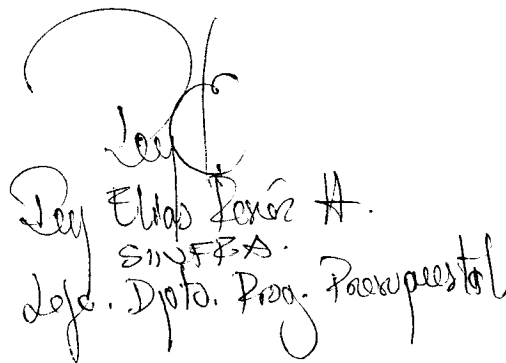 Rey
Rey Elias Renán H.
SINFRA.
Jefe. Dpto. Prog. Presupuestal